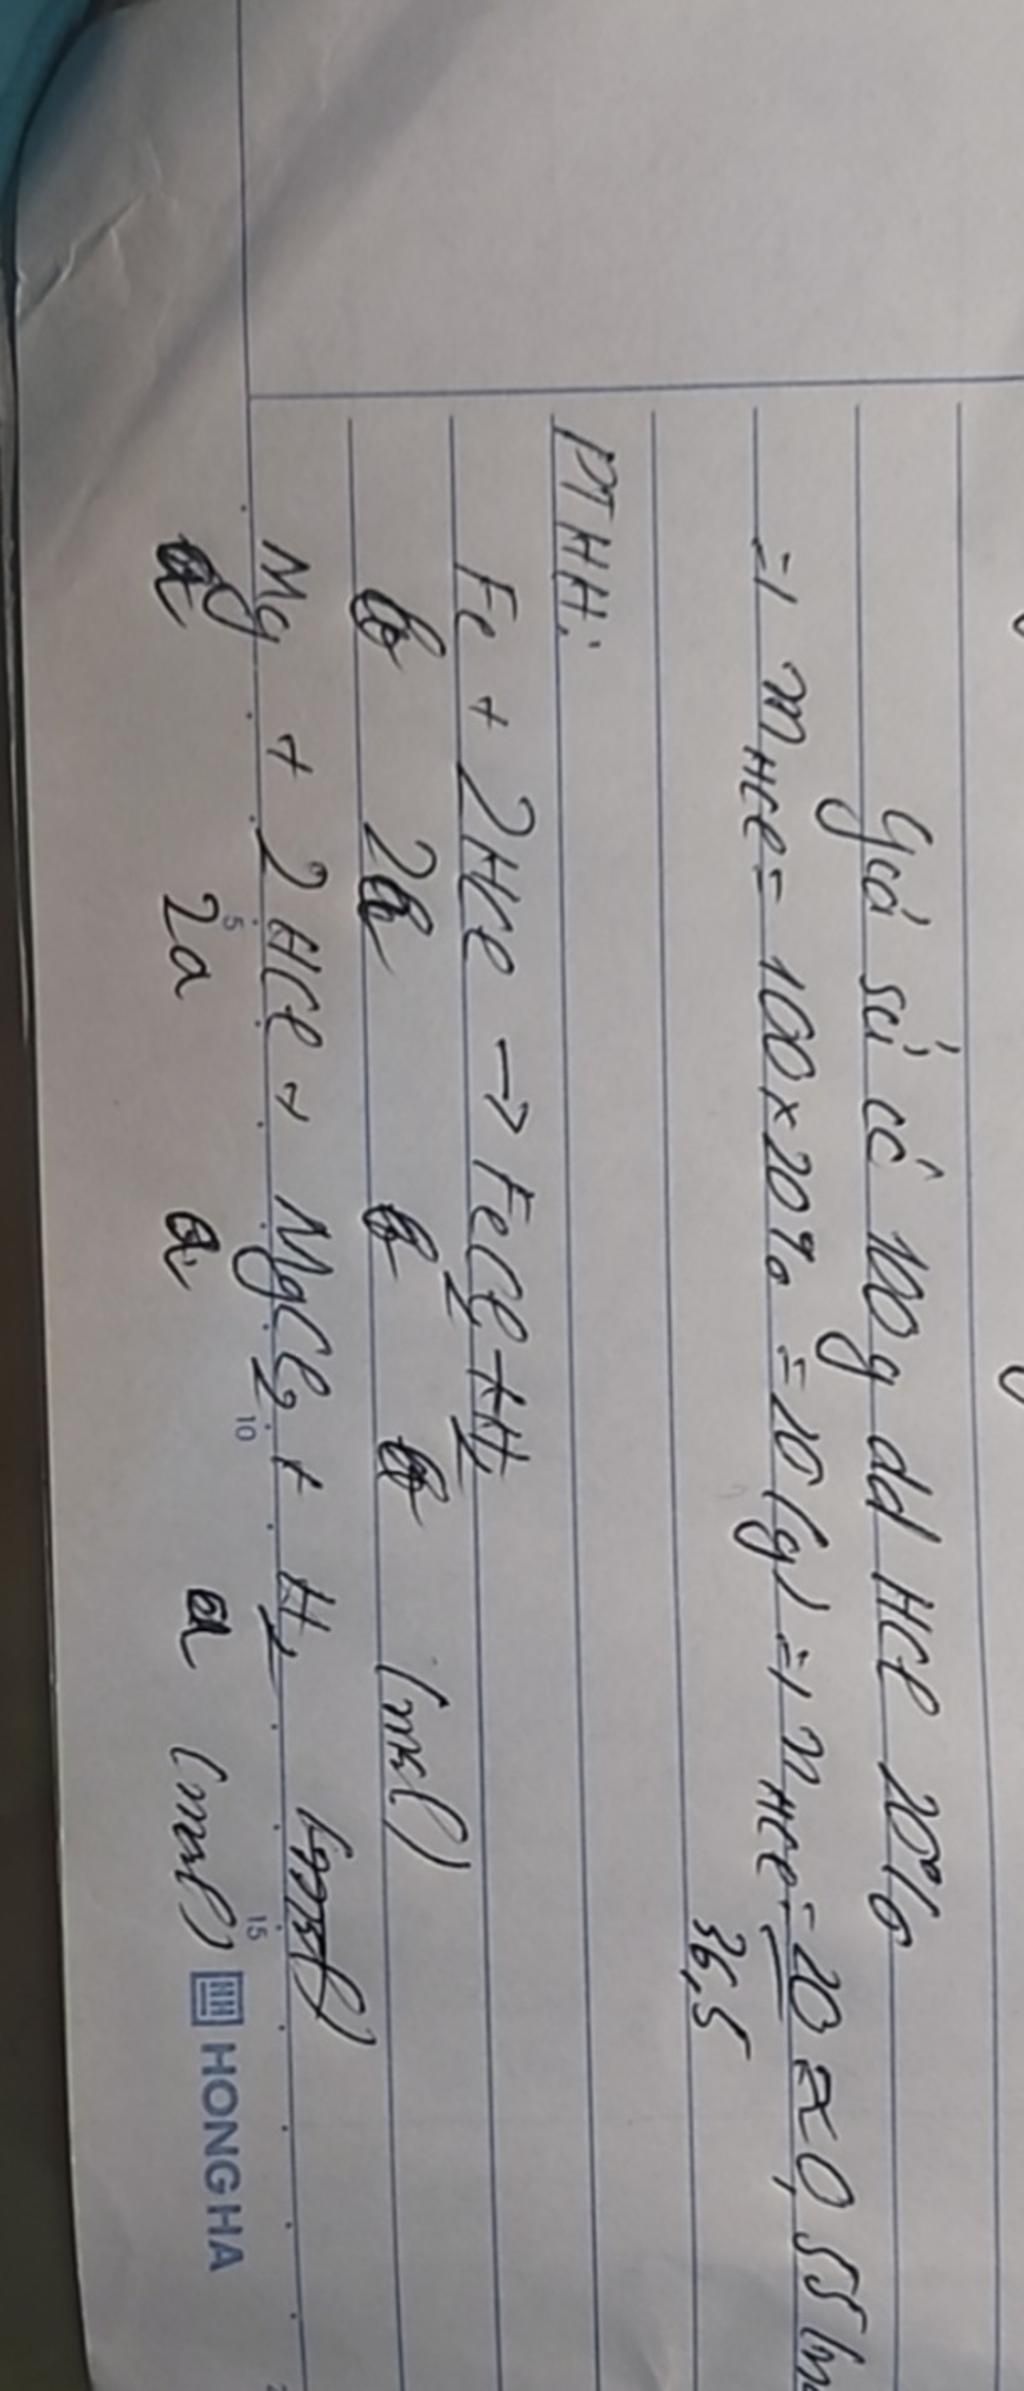 Giả sử có 100g dd HCl 20%
=> mHCl = 100 x 20% = 20 (g) => nHCl = 20 ≈ 0,55 (mo
36,5
PTHH:
Fe + 2HCl → FeCl2 + H2
b 2b b b (mol)
Mg + 2HCl → MgCl2 + H2 (mol)
a 2a a a (mol)
5 10 15
HONG HA